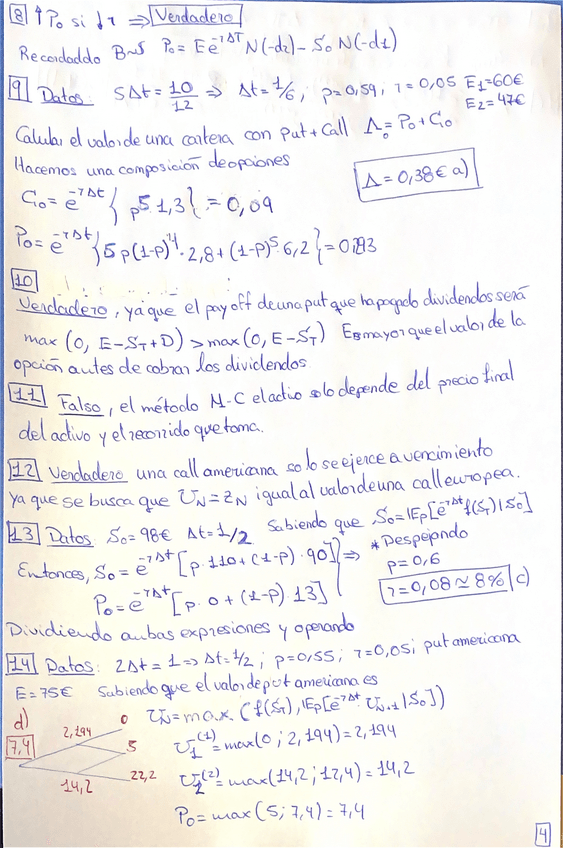 8 ↑P₀ si ↓r ⟹ Verdadero
Recordaddo B~S P₀ = E e^{-rΔT} N(-d₂) - S₀ N(-d₁)
9 Datos: 5Δt = 10/12 ⟹ Δt = 1/6 ; p = 0,59 ; r = 0,05 E₁=60€
E₂=47€
Calular el valor de una cartera con put+call Λ₀ = P₀ + C₀
Hacemos una composición de opciones
Λ = 0,38€ a)
C₀ = e^{-rΔt} { p⁵ 1,3 } = 0,09
P₀ = e^{-rΔt} { 5p(1-p)⁴ · 2,8 + (1-p)⁵ · 6,2 } =
10
Verdadero, ya que el pay off de una put que ha pagado dividendos será
max (0, E-S_T+D) > max (0, E-S_T) Es mayor que el valor de la
opción antes de cobrar los dividendos
11 Falso, el método M-C el activo solo depende del precio final
del activo y el recorrido que toma.
12 Verdadero una call americana solo se ejerce a vencimiento
ya que se busca que U_N = z_N igual al valor de una call europea.
13 Datos S₀ = 98€ Δt = 1/2 Sabiendo que S₀ = E_P[e^{-rΔt} f(S_T) | S₀]
Entonces, S₀ = e^{-rΔt} [p · 110 + (1-p) · 90] } ⟹ * Despejando
P₀ = e^{-rΔt} [p · 0 + (1-p) · 13] p = 0,6
r = 0,08 ≃ 8% c)
Dividiendo ambas expresiones y operando
14 Datos: 2Δt = 1 ⟹ Δt = 1/2 ; p = 0,55 ; r = 0,05 ; put americana
E = 75€ Sabiendo que el valor de put americana es
d) U_N = max (f(S_T), E_P[e^{-rΔt} U_{N+1} | S₀])
7,4 2,194 0
5
14,2 22,2
U₁⁽¹⁾ = max(0 ; 2,194) = 2,194
U₂⁽²⁾ = max(14,2 ; 12,4) = 14,2
P₀ = max(5 ; 7,4) = 7,4
4